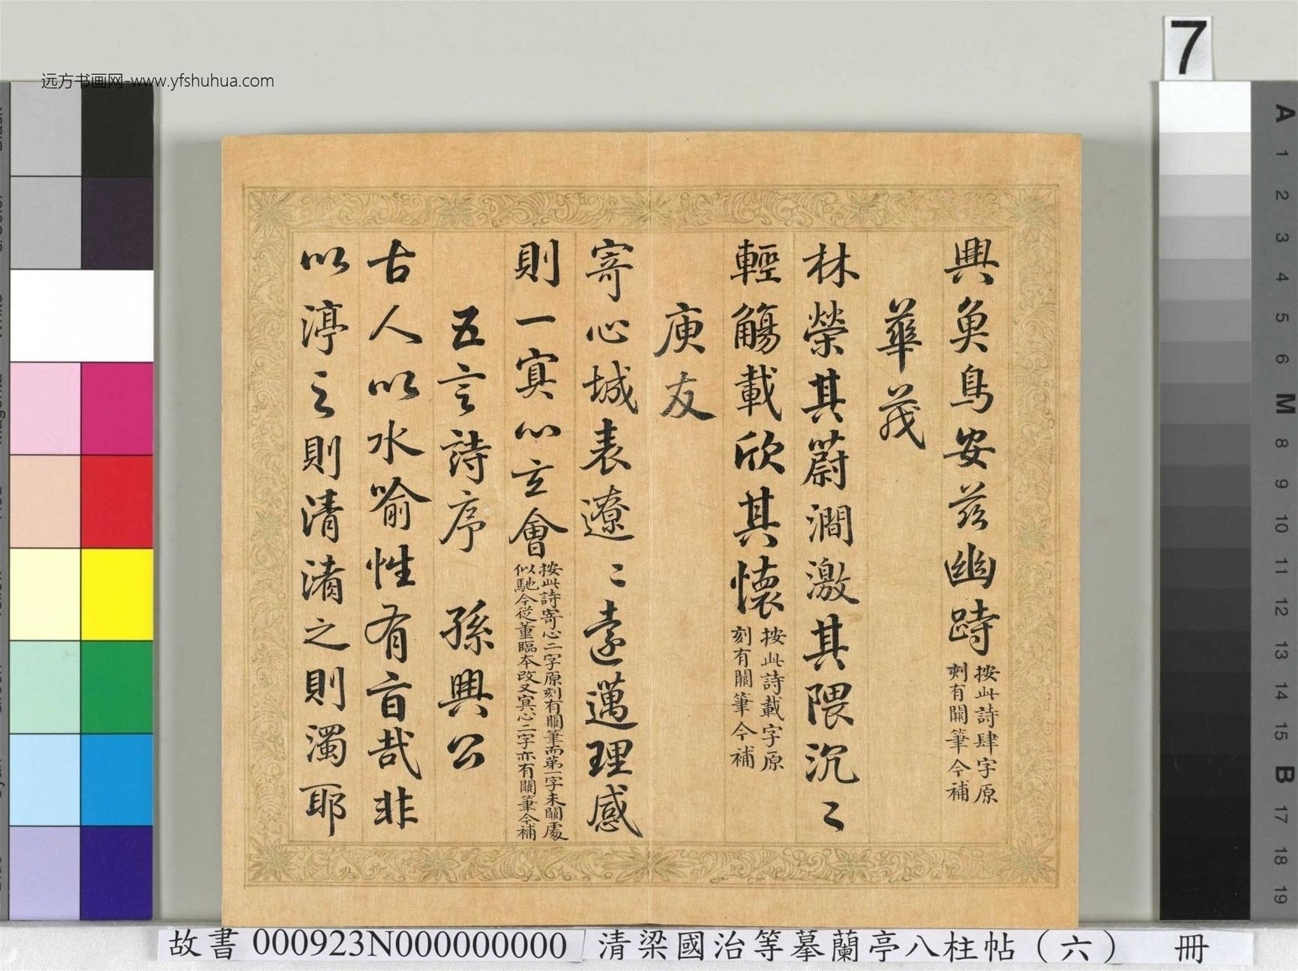 远方书画网-www.yfshuhua.com
7
興魚鳥安茲幽跱
按此詩肆字原
刻有闕筆今補
華茂
林榮其蔚澗激其隈汎〻
輕觴載欣其懷
按此詩載字原
刻有闕筆今補
庾友
寄心域表遼〻遠邁理感
則一冥心玄會
按此詩寄心二字原刻有闕筆而第一字未闕處
似馳今從董臨本改又冥心二字亦有闕筆今補
五言詩序 孫興公
古人以水喻性有旨哉非
以渟之則清淆之則濁耶
A
1
2
3
4
5
6
M
8
9
10
11
12
13
14
15
B
17
18
19
故書 000923N000000000 清梁國治等摹蘭亭八柱帖（六） 冊